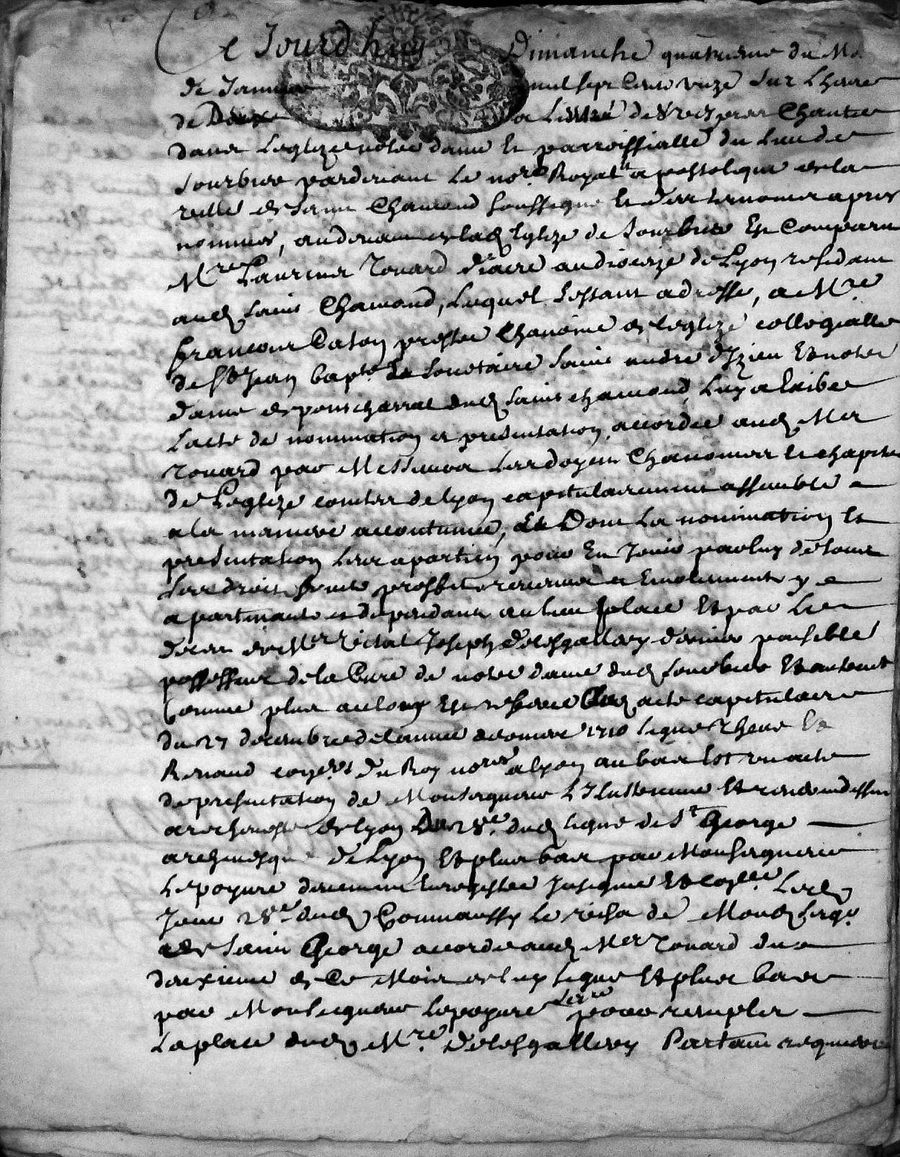 Ce Jourd'huy Dimanche quatrieme du Mo
de Janvier mil sept cent unze sur Lheure
de Douze a Lissue de Vespres Chantée
dans Leglize notre dame et parroissialle du Lieu de
Sourbier pardevant Le no.re Royal apostolique de la
ville de Saint Chamond soussigné et tesmoins apres
nommes, au devant de lad Eglize de Sourbier Est Comparu
M.re Laurens Touard diacre au dioceze de Lyon residant
aud Saint Chamond, Lequel sestant adressé, a M.re
francois Caton prestre Chanoine de leglize collegialle
de St Jean bapte et soucietaire Saint andré dIzieu et notre
dame de pontcharrat dud Saint chamond, Luy a Exibé
Lacte de nomination et presentation, accordée aud M.re
Touard par Messieurs Les doyen Chanoines et chapitre
de Leglize comtes de Lyon capitulairement assemblé
a la maniere accoutumée, et Dont La nomination et
presentation leur apartien pour En Jouir par luy de tous
Les droits fruits proffits revenus et Emoluments y
apartenants et dependants au lieu place et par Le
deces de M.re vital Joseph delesgallery dernier paisible
possesseur de la Cure de notre dame dud Sourbier et autrement
Comme plus au long est reservé aud acte capitulaire
du 27 decembre de lannée derniere 1710 signé Theve et
Renaud coners du Roy nores a Lyon au bas Est un acte
de presentation de Monseigneur Lillustrissime et reverendissime
archeveque de Lyon du 28.e dud signé de St George
archevesque de Lyon et plus bas par Monseigneur
Lepoyure duement Enregistré Insinué et controllé Led
Jour 28.e dud Commis Le visa de Mond seigr
de Saint George accordé aud M.re Touard du
deuxieme de Ce Mois de luy signé et plus bas
par Monseigneur Lepoyure pour remplir
La place dud M.re delesgallery Partant requiert